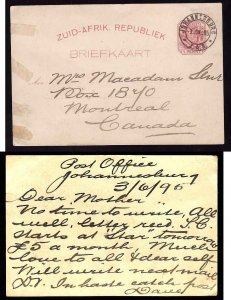 ZUID-AFRIK. REPUBLIEK
BRIEFKAART
JOHANNESBURG
Mrs Macadam Senr
Box 1840
Montreal
Canada
Post Office
Johannesburg
3/6/96
Dear Mother
No time to write, All
well, letter recd.
starts at tomorrow
£5 a month, Much
love to all & dear self
Will write next mail
D.V. In haste catch post
Dave